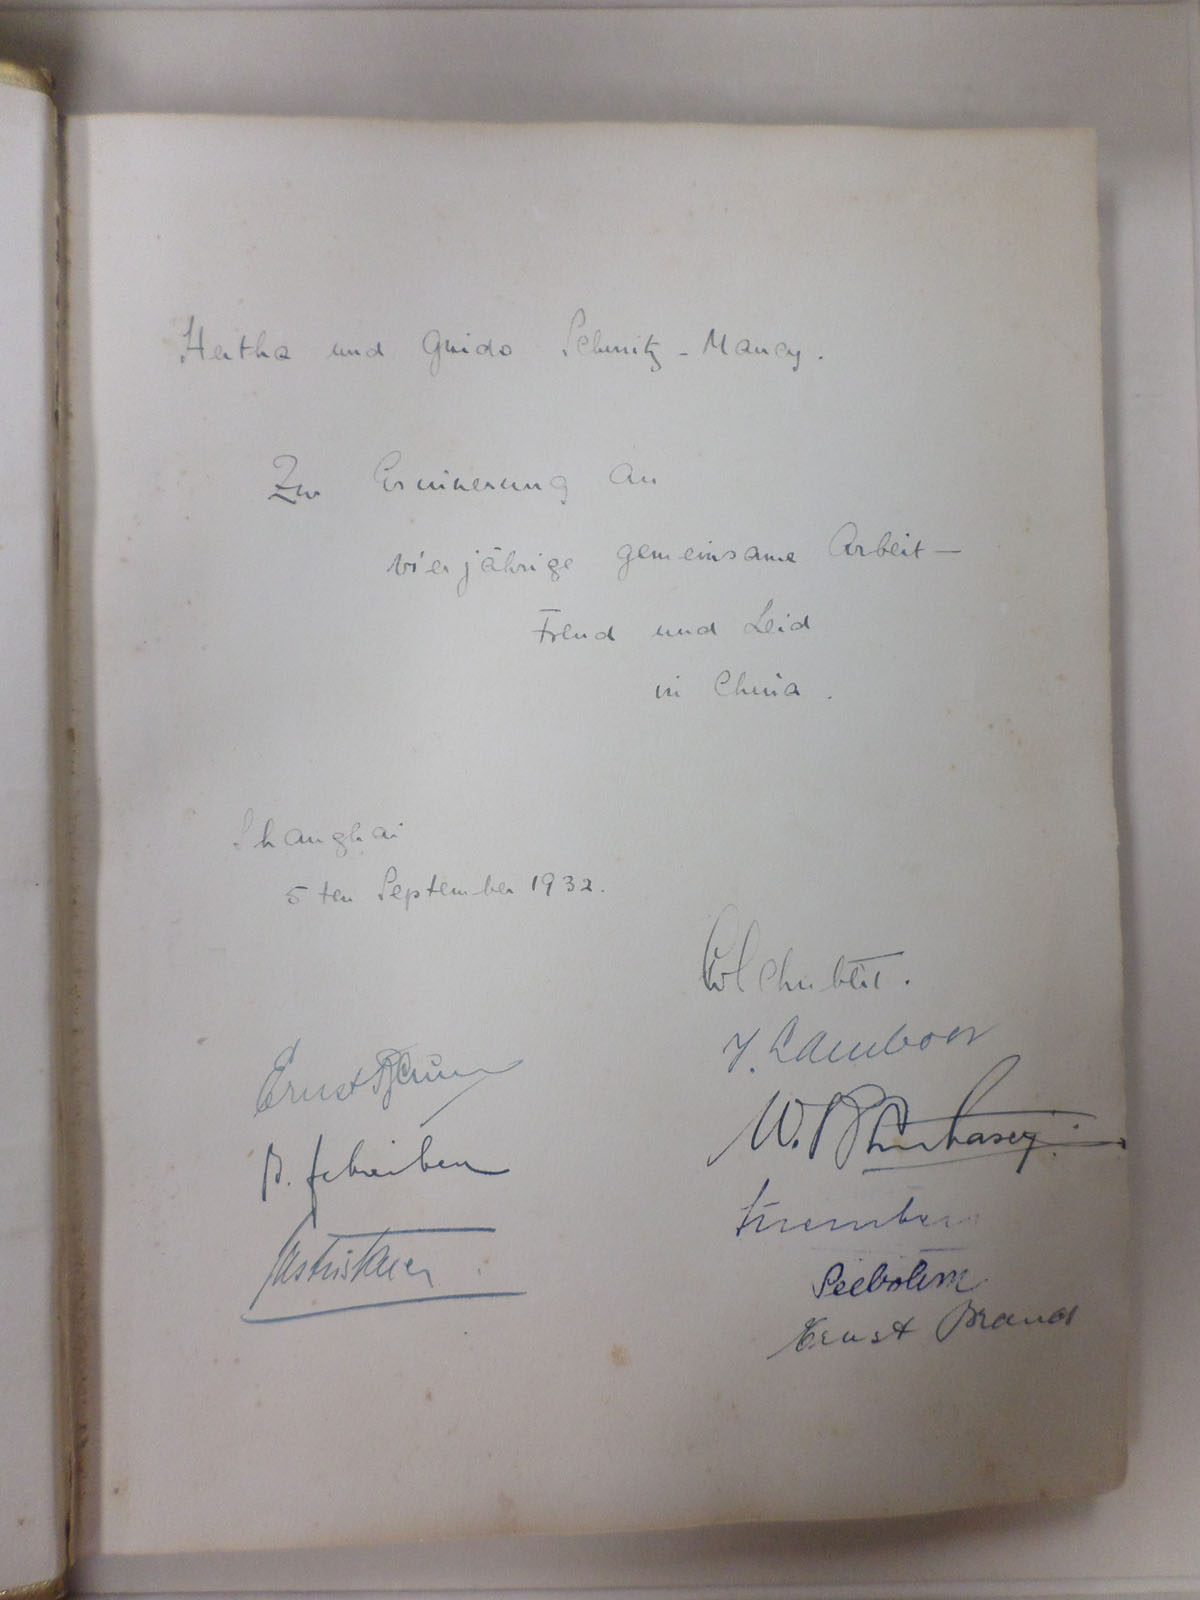 Hertha und Guido Schmitz-Mancy.
Zur Erinnerung an
vierjährige gemeinsame Arbeit —
Freud und Leid
in China.
Shanghai
5ten September 1932.
Schubert.
Ernst
B. Schreiber
W.
Seebohm
Ernst Brand